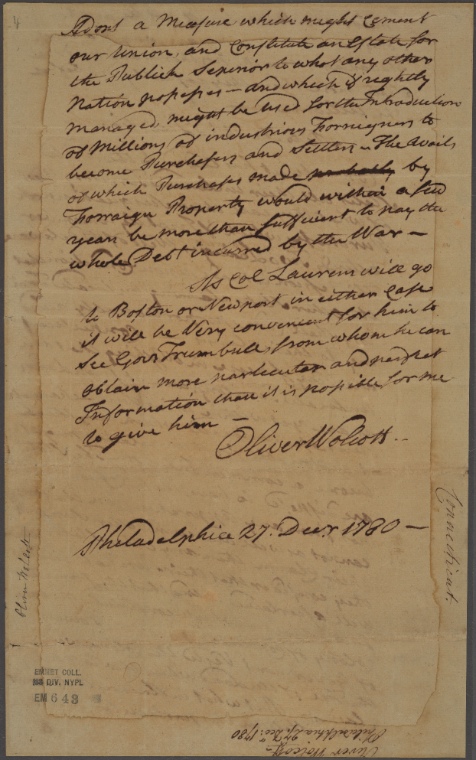 Adopt a Measure which might cement
our Union, and constitute an Estate for
the Publick Superior to what any other
Nation possesses — and which if rightly
managed might be used for the Introduction
of Millions of industrious Forreigners to
become Purchasers and Settlers — The Avails
of which Purchases made probably by
Forraign Property would within a few
years be more than sufficient to pay the
whole Debt incurred by the War —
As Col Laurens will go
to Boston or Newport in either Case
it will be Very convenient for him to
See Govr Trumbull, from whom he can
obtain more particular and perfect
Information than it is possible for me
to give him —
Oliver Wolcott —
Philadelphia 27. Decr 1780 —
Connecticut.
Oliver Wolcott
EMMET COLL.
MS DIV. NYPL
EM 643
Oliver Wolcott —
Philadelphia 27 Dec: 1780